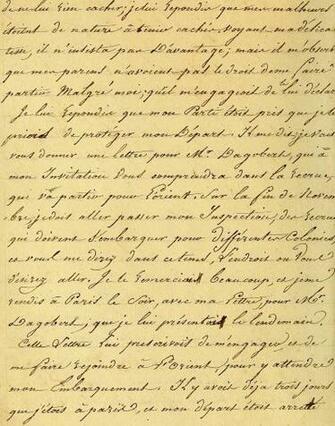 de ne lui rien cacher, je lui repondis que mes malheurs
étoient de nature à tenir caché, voyant ma délica
tesse, il n'insista pas davantage; mais il m'observa
que mes parens n'avoient pas le droit de me faire
partir Malgré moi; qu'il m'engageoit de lui déclar
Je lui repondis que mon Parti étoit pris que je le
priois de protéger mon Départ. Il me dit, je vais
vous donner une lettre pour Mr. Dagobert, qui à
mon Invitation vous comprendra dans la Recrue,
qui va partir pour l'orient. Sur la fin de Novem
bre, je dois aller passer mon Inspection, des Recrues
qui doivent s'embarquer pour différentes Colonies
et vous me direz dans ce tems, l'endroit ou vous
désirez aller. Je le remerciai beaucoup, et je me
rendis à Paris le Soir, avec ma lettre, pour Mr.
Dagobert, que je lui présentai le lendemain.
Cette Lettre lui prescrivoit de m'engager, et de
me faire rejoindre à l'orient, pour y attendre
mon Embarquement. Il y avoit déja trois jours
que j'étois à paris, et mon départ étoit arreté